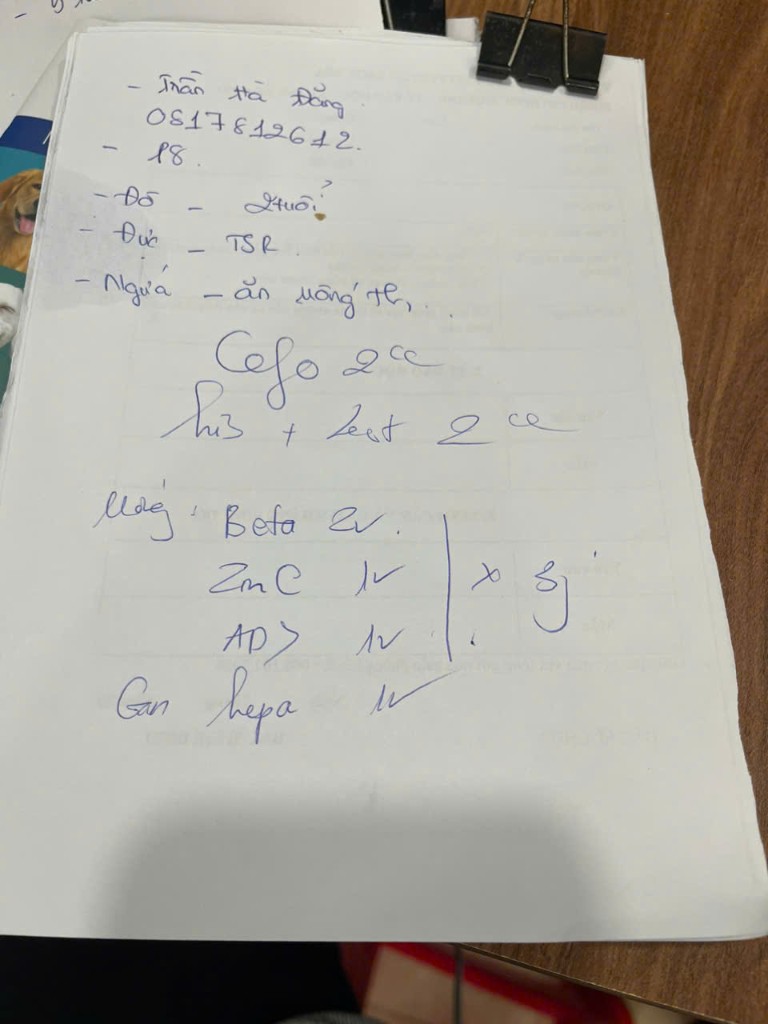 - Trần Hà Đăng
0817812612.
- 18.
- Đô - 2 tuổi
- Đực - TSR.
- Ngứa - ăn uống
Cefo 2cc
his + 2cc
Uống: Beta 2v.
ZnC 1v x 5j
1v
Gan hepa 1v